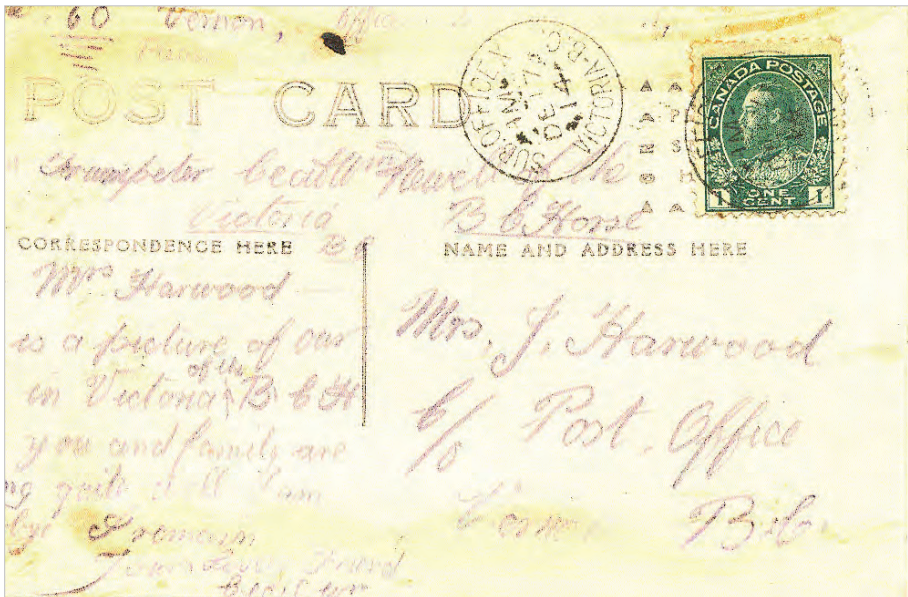 60 Vernon,
POST CARD
SUB. OFFICE
VICTORIA-B.C.
DE 17
14
CANADA POSTAGE
1 ONE CENT 1
Trumpeter Newell of the
Victoria B C Horse
B C
CORRESPONDENCE HERE
NAME AND ADDRESS HERE
Mrs Harwood
is a picture of our
in Victoria of the B C H
you and family are
quite well I am
bye I remain
Your Friend
Mrs. J. Harwood
c/o Post. Office
Vernon B.C.